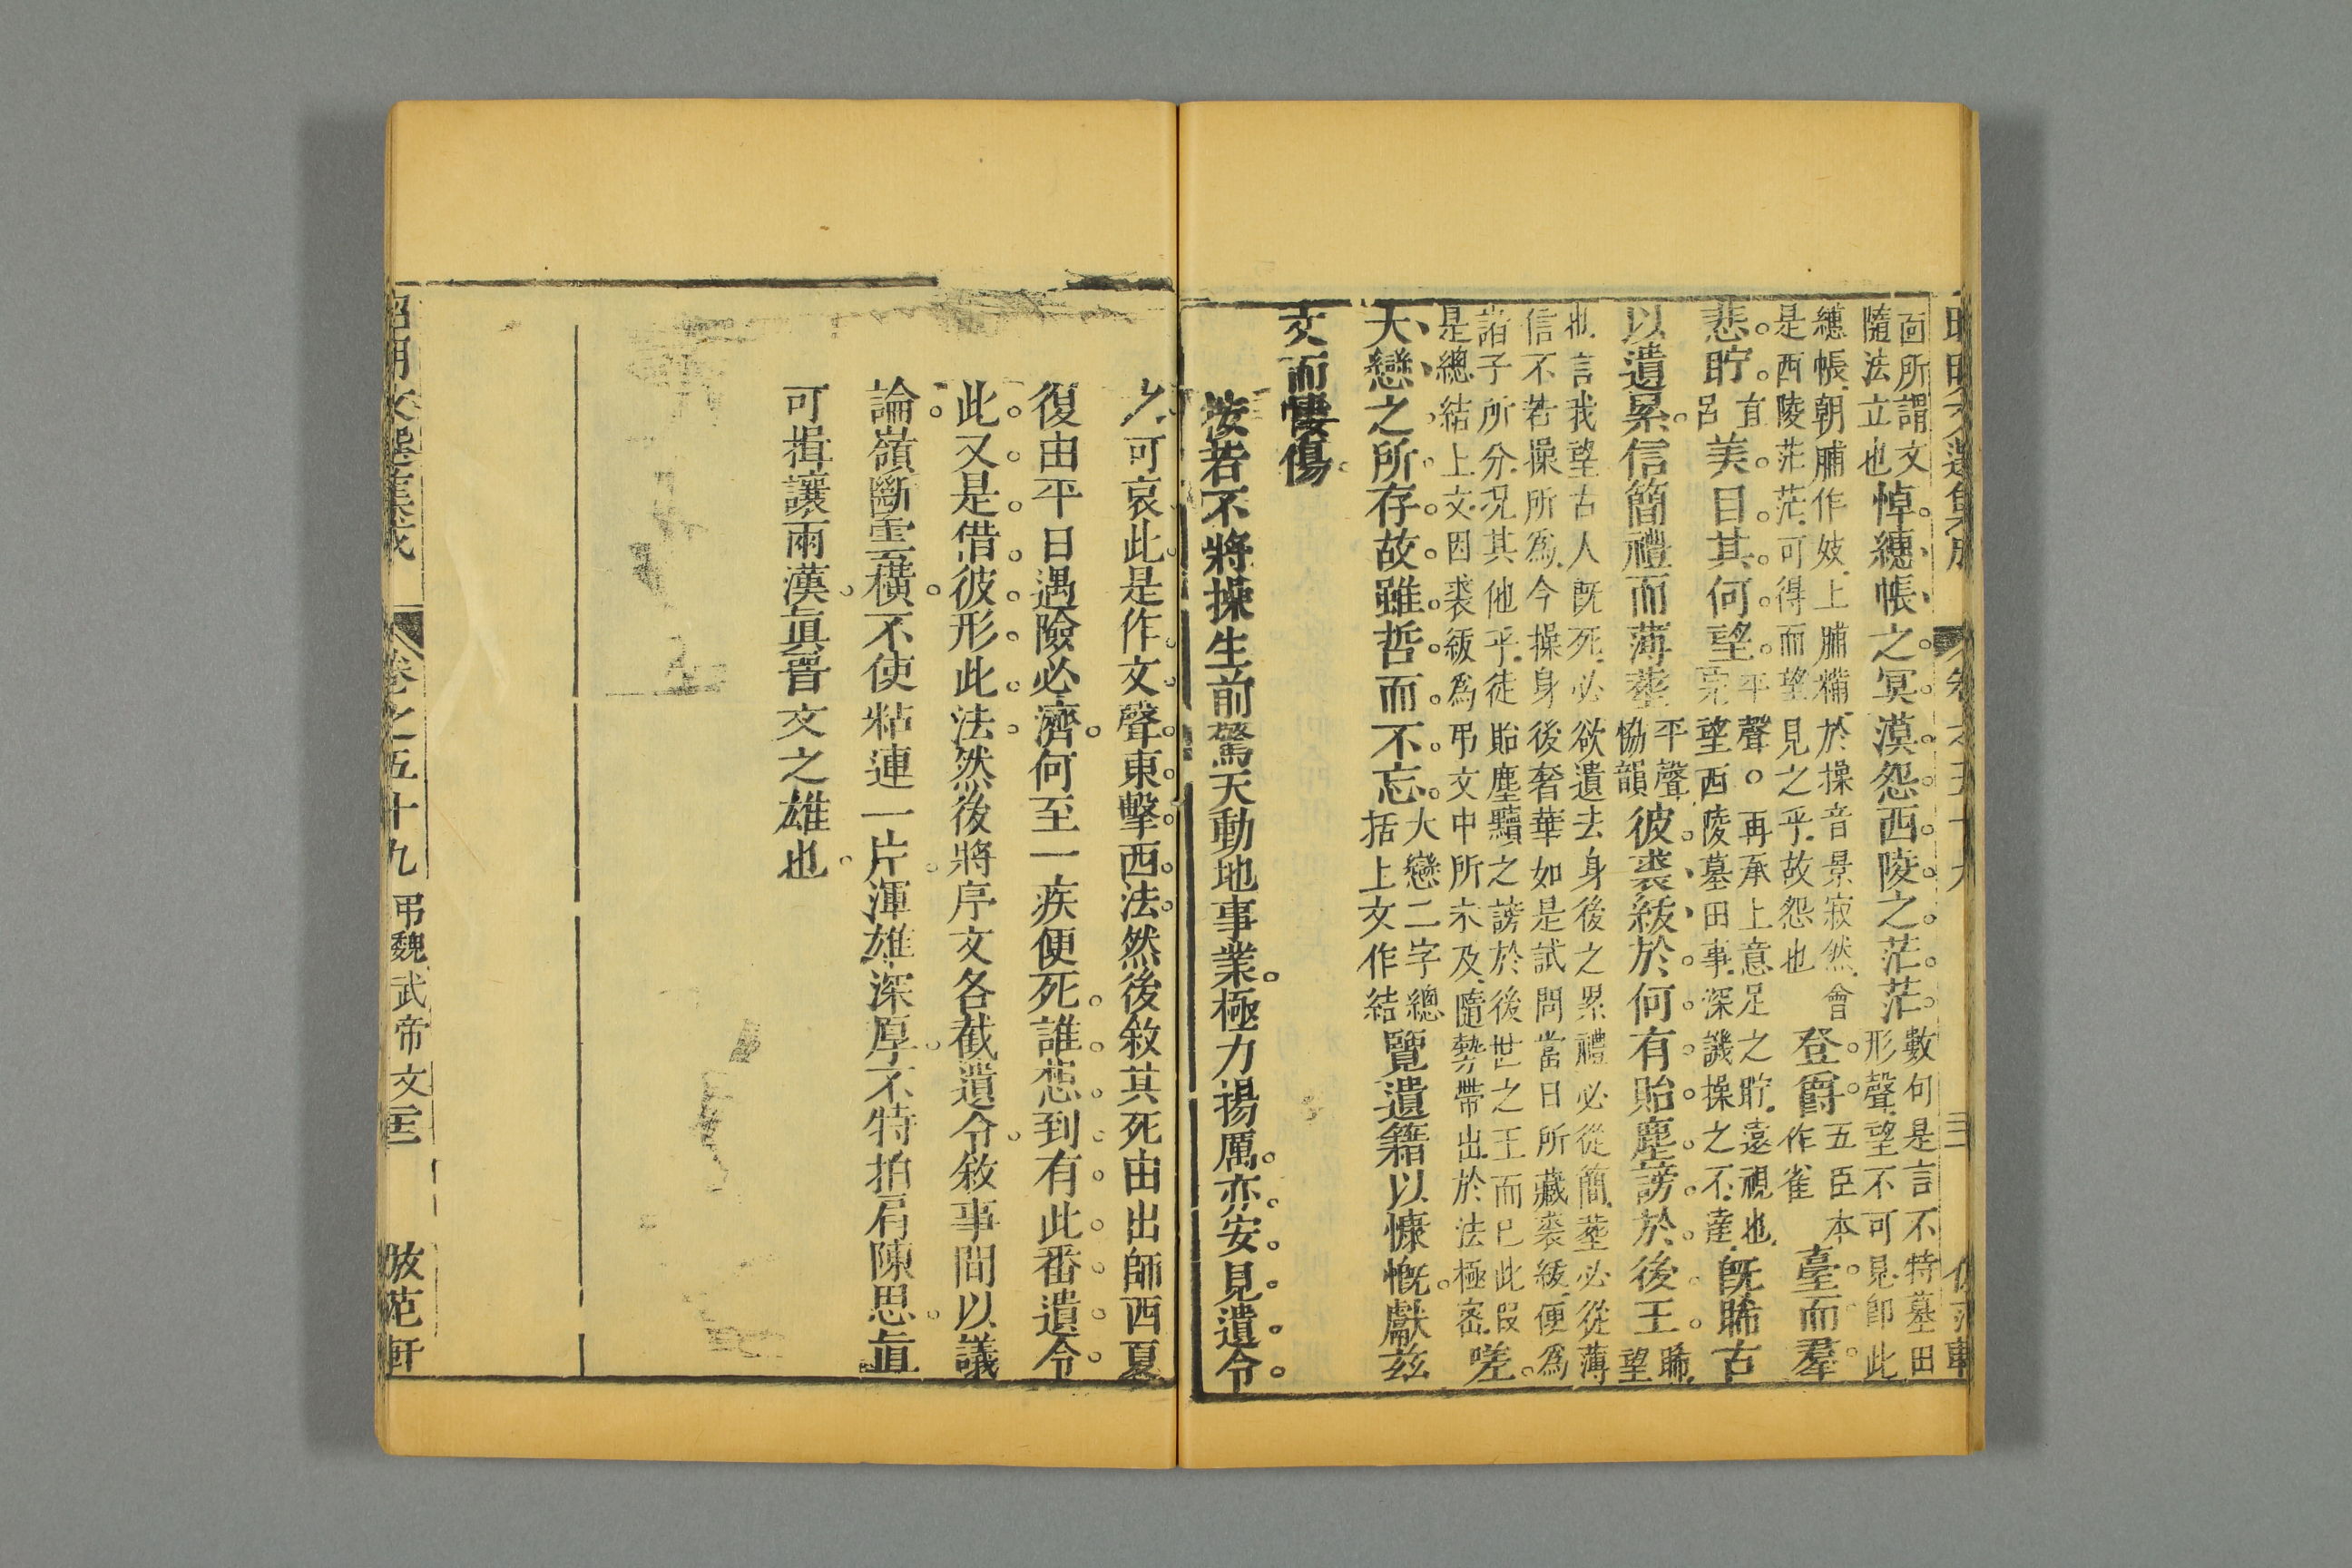 面所謂文
隨法立也
悼繐帳之冥漠怨西陵之茫茫
數句是言不特墓田
形聲望不可見卽此
繐帳朝脯作妓上脯糒於操音景寂然會
是西陵茫茫可得而望見之乎故怨也
登爵
五臣本
作雀
臺而羣
悲貯
直
呂
美目其何望
平聲○再承上意足之貯遠視也
望西陵墓田事深譏操之不達
既睎古
以遺累信簡禮而薄葬
平聲
協韻
彼裘紱於何有貽塵謗於後王
睎
望
也言我望古人既死必欲遺去身後之累禮必從簡葬必從薄
信不若操所爲今操身後奢華如是試問當日所藏裘紱便爲
諸子所分况其他乎徒貽塵黷之謗於後世之王而已此叚
是總結上文因裘紱爲弔文中所未及隨勢帶出於法極密
嗟
大戀之所存故雖哲而不忘
大戀二字總
括上文作結
覽遺籍以慷慨獻兹
文而悽傷
按若不將操生前驚天動地事業極力揚厲亦安見遺令
之可哀此是作文聲東擊西法然後敘其死由出師西夏
復由平日遇險必濟何至一疾便死誰想到有此番遺令
此又是借彼形此法然後將序文各截遺令敘事間以議
論嶺斷雲橫不使粘連一片渾雄深厚不特拍肩陳思直
可揖讓兩漢眞晉文之雄也
昭明文選集成 卷之五十九 弔魏武帝文 倣范軒